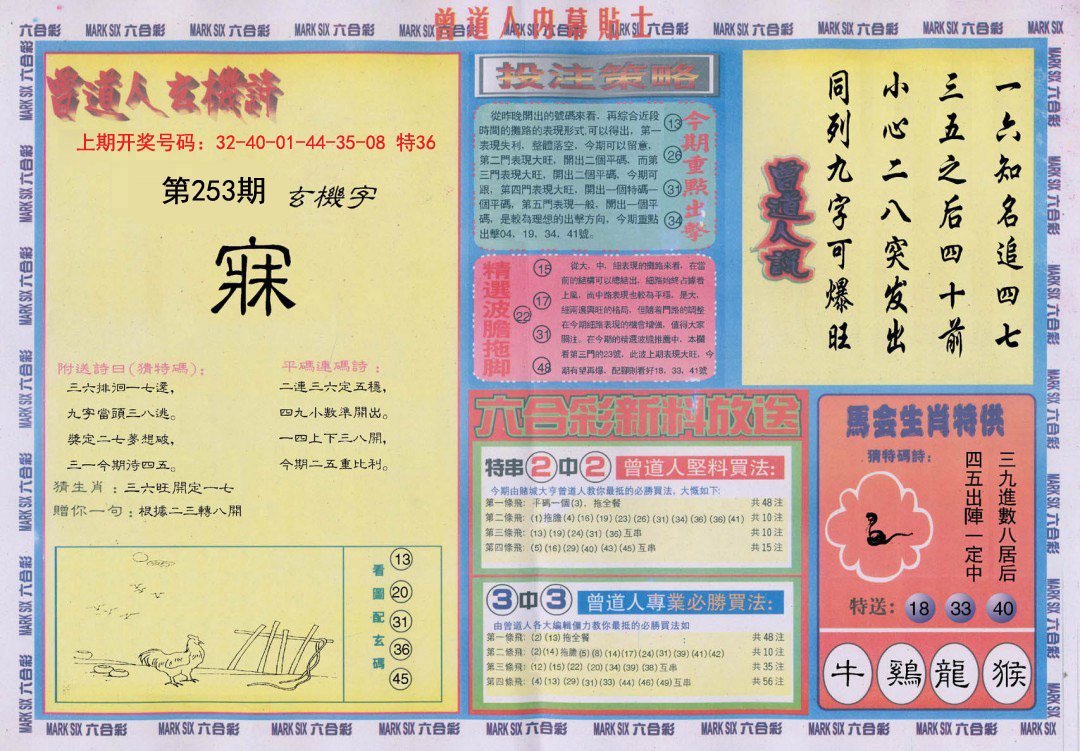 曾道人内幕貼士
MARK SIX 六合彩
曾道人玄機詩
上期开奖号码：32-40-01-44-35-08 特36
第253期 玄機字
附送詩曰(猜特碼)：
三六排徊一七邊，
九字當頭三八逃。
獎定二七夢想破，
三一今期待四五。
平碼連碼詩：
二連三六定五穩，
四九小數準開出。
一四上下三八開，
今期二五重比利。
猜生肖：三六旺開定一七
贈你一句：根據二三轉八開
看圖配玄碼
13
20
31
36
45
投注策略
從昨晚開出的號碼來看，再綜合近段
時間的攤路的表現形式,可以得出，第一
表現失利，整體落空，今期可以留意，
第二門表現大旺，開出二個平碼，而第
三門表現大旺，開出二個平碼，今期可
跟，第四門表現大旺，開出一個特碼一
個平碼，第五門表現一般，開出一個平
碼，是較為理想的出擊方向，今期重點
出擊04、19、34、41號。
13
26
31
34
今期重點出擊
精選波膽拖脚
15
17
22
31
48
從大、中、細表現的攤路來看，在當
前的結構可以總結出，細路始終占據着
上風，而中路表現也較為平穩，是大、
細兩邊興旺的格局，但隨着門路的調整
在今期細路表現的機會增強，值得大家
關注，在今期的精選波膽推薦中，本欄
看第三門的23號，此波上期表現大旺，今
期有望再爆，配腳則看好18、33、41號
六合彩新料放送
特串2中2 曾道人堅料買法：
今期由賭城大亨曾道人教你最抵的必勝買法，大慨如下：
第一條飛：平碼一個(3)，拖全餐 共48注
第二條飛：(1)拖膽(4)(16)(19)(23)(26)(31)(34)(36)(36)(41) 共10注
第三條飛：(13)(19)(24)(31)(36)互串 共10注
第四條飛：(5)(16)(29)(40)(43)(45)互串 共15注
3中3 曾道人專業必勝買法：
由曾道人各大編輯僵力教你最抵的必勝買法如
第一條飛：(2)(13)拖全餐 共48注
第二條飛：(2)(14)拖膽(5)(8)(14)(17)(24)(31)(39)(41)(42) 共10注
第三條飛：(12)(15)(22)(20)(34)(39)(38)互串 共35注
第四條飛：(4)(13)(29)(31)(33)(44)(46)(49)互串 共56注
曾道人説
一六知名追四七
三五之后四十前
小心二八突发出
同列九字可爆旺
馬会生肖特供
猜特碼詩：
三九進數八居后
四五出陣一定中
特送：18 33 40
牛 鷄 龍 猴